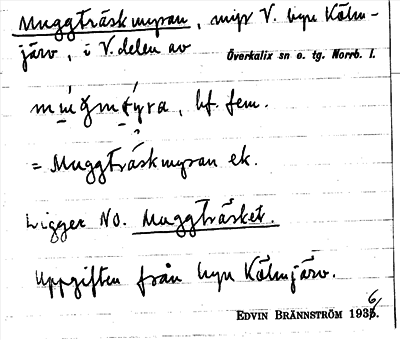 Muggträskmyran, myr V. byn Kölm-
järv, i V. delen av
Överkalix sn o. tg. Norrb. l.
, bf. fem.
= Muggträskmyran ek.
Ligger NO. Muggträsket.
Uppgiften från byn Kölmjärv.
EDVIN BRÄNNSTRÖM 1936.